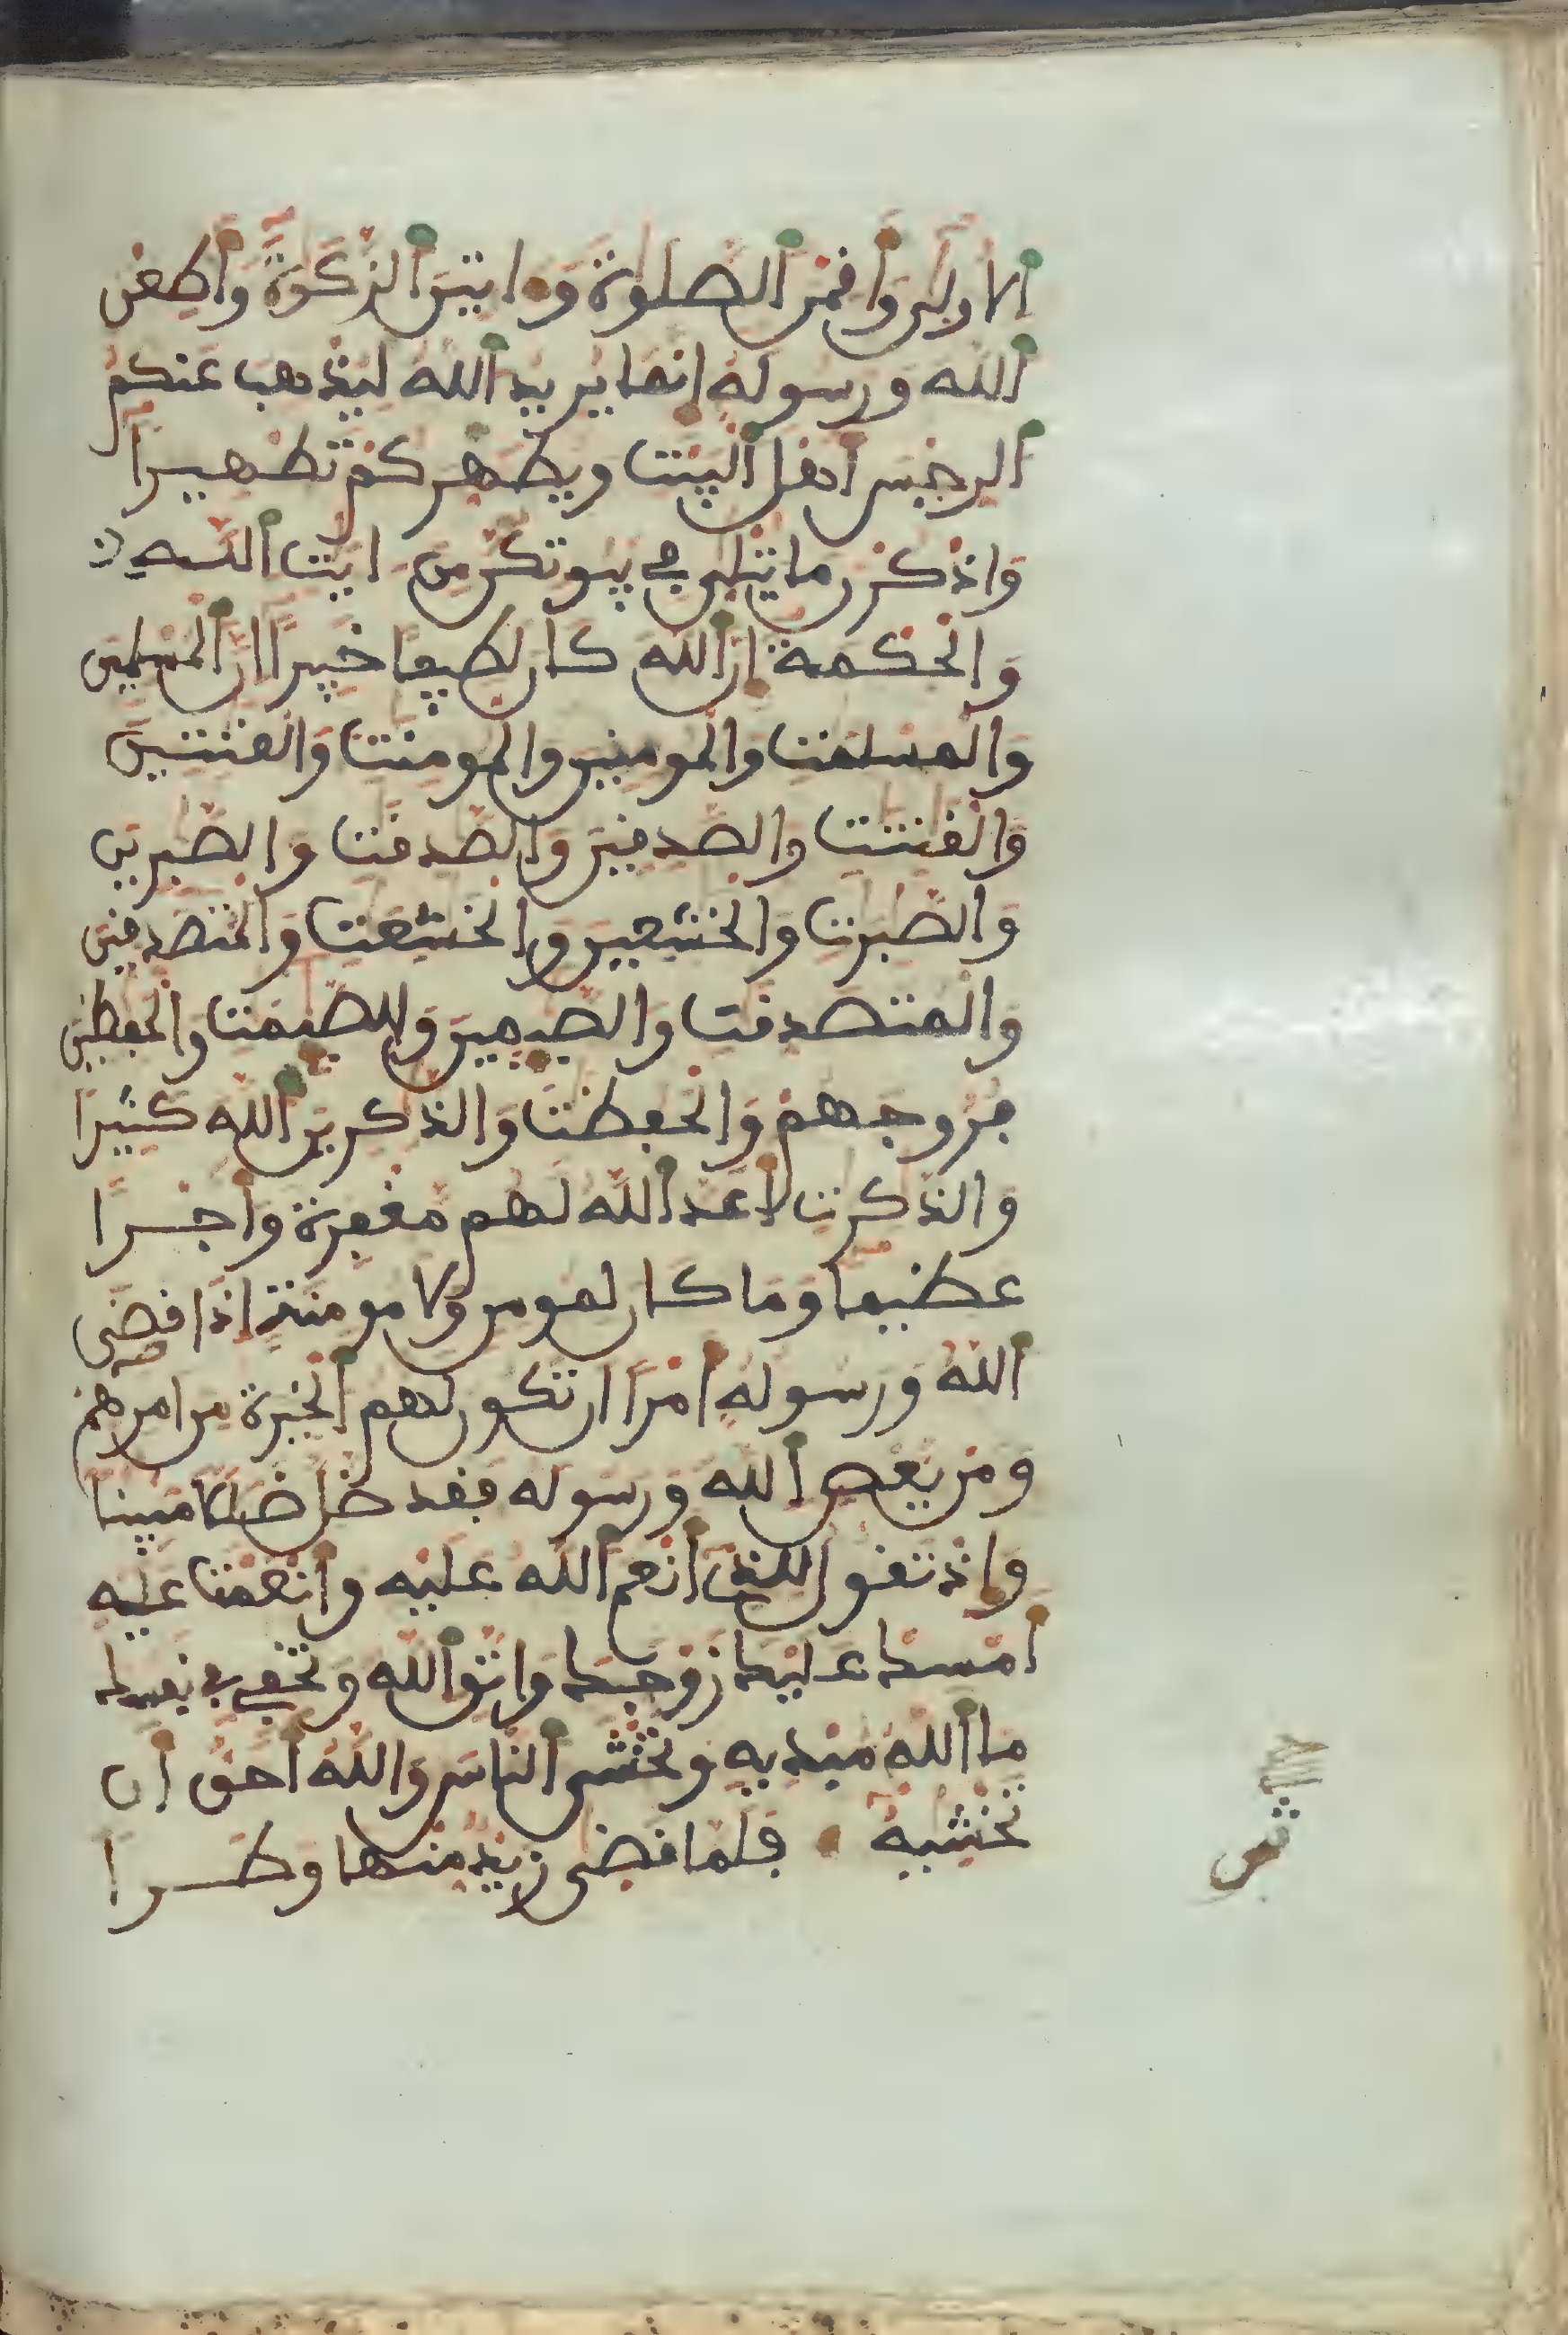 الاولى وأقمن الصلوة وءاتين الزكوة وأطعن
الله ورسوله إنما يريد الله ليذهب عنكم
الرجس أهل البيت ويطهركم تطهيرا
واذكرن ما يتلى في بيوتكن من ءايت الله
والحكمة إن الله كان لطيفا خبيرا إن المسلمين
والمسلمت والمومنين والمومنت والقنتين
والقنتت والصدقين والصدقت والصبرين
والصبرت والخشعين والخشعت والمتصدقين
والمتصدقت والصيمين والصيمت والحفظين
فروجهم والحفظت والذكرين الله كثيرا
والذكرت أعد الله لهم مغفرة وأجرا
عظيما وما كان لمومن ولا مومنة إذا قضى
الله ورسوله أمرا ان تكون لهم الخيرة من امرهم
ومن يعص الله ورسوله فقد ضل ضللا مبينا
وإذ تقول للذي أنعم الله عليه وأنعمت عليه
أمسك عليك زوجك واتق الله وتخفي في نفسك
ما الله مبديه وتخشى الناس والله أحق أن
تخشيه فلما قضى زيد منها وطرا
ثمن